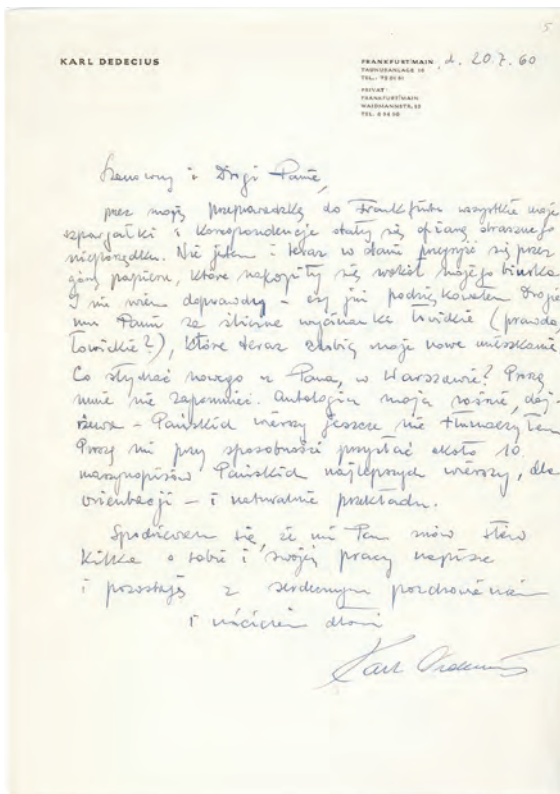 5
KARL DEDECIUS
FRANKFURT/MAIN, d. 20.7.60
TAUNUSANLAGE
TEL.
PRIVAT:
FRANKFURT/MAIN
TEL.
Szanowny i Drogi Panie,
przez moją przeprowadzkę do Frankfurtu wszystkie moje
szpargałki i korespondencje stały się ofiarą strasznego
nieporządku. Nie jestem i teraz w stanie przejrzeć się przez
górę papieru, które nakopiły się wokół mojego biurka.
I nie wiem doprawdy – czy już podziękowałem Drogie
mu Panu za śliczne wycinanki łowickie (prawda,
łowickie?), które teraz zdobią moje nowe mieszkanie.
Co słychać nowego u Pana, w Warszawie? Proszę
mnie nie zapomnieć. Antologia moja rośnie,
Pańskich wierszy jeszcze nie tłumaczyłem
Proszę mi przy sposobności przysłać około 10
maszynopisów Pańskich najlepszych wierszy, dla
orientacji – i naturalnie przekładu.
Spodziewam się, że mi Pan znów słów
kilka o sobie i swojej pracy napisze
i pozostaję z serdecznym pozdrowieniem
i uściskiem dłoni
Karl Dedecius